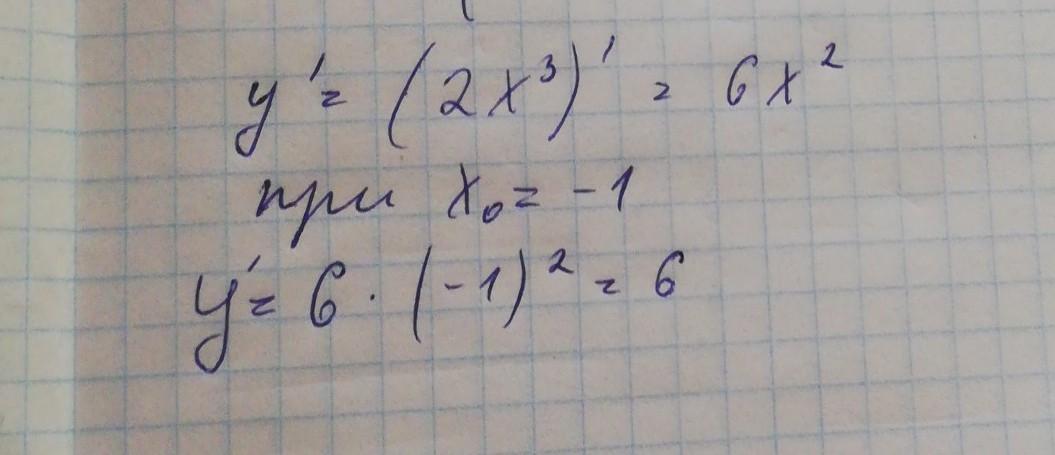 y' = (2x³)' = 6x²
при x₀ = -1
y' = 6 · (-1)² = 6